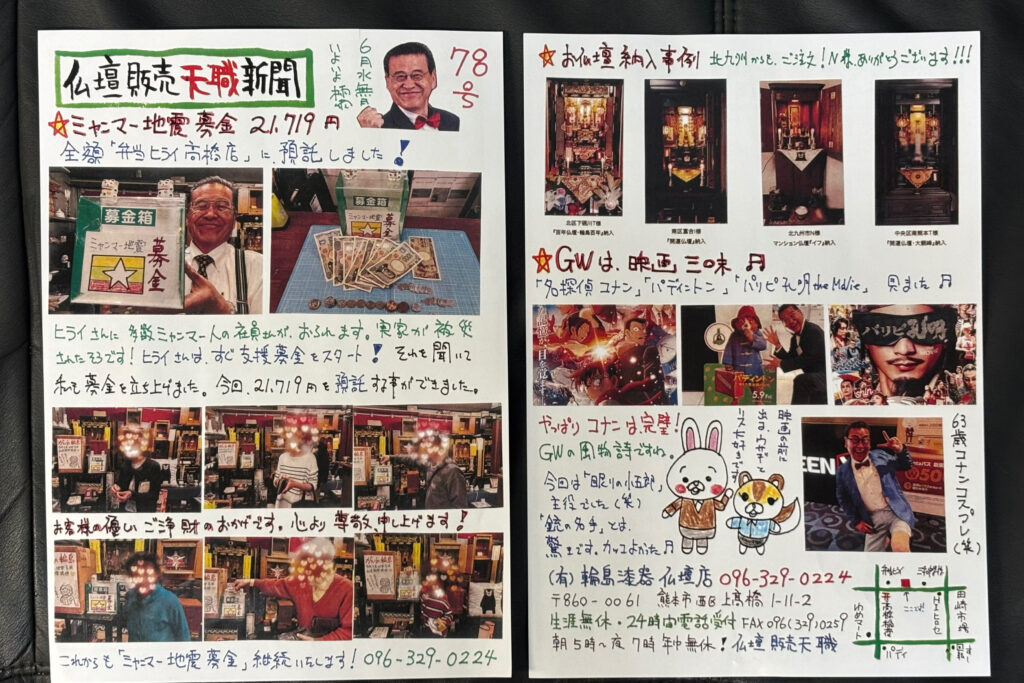 仏壇販売天職新聞
6月水無月
いよいよ梅雨
78号
☆ミャンマー地震募金 21,719円
全額「弁当ヒライ高橋店」に、預託しました!
募金箱
ミャンマー地震
募金
募金箱
ミャンマー地震
募金
ヒライさんに多数ミャンマー人の社員さんが、おられます。実家が被災
されたそうです!ヒライさんは、すぐ支援募金をスタート!それを聞いて
私も募金を立ち上げました。今回、21,719円を預託する事ができました。
お客様の優しいご浄財のおかげです。心より尊敬申し上げます!
これからも「ミャンマー地震募金」継続いたします!096-329-0224
☆お仏壇納入事例 北九州からも、ご注文!N様、ありがとうございます!!!
北区下硯川T様
『百年仏壇・輪島百年』納入
南区富合I様
『開運仏壇』納入
北九州市N様
マンション仏壇『イフ』納入
中央区南熊本T様
『開運仏壇・大観峰』納入
☆GWは、映画三昧♬
「名探偵コナン」「パディントン」「パリピ孔明the Movie」見ました♬
パディントン
5.9
パリピ孔明
やっぱりコナンは、完璧!
GWの風物詩ですね。
今回は「眠りの小五郎」
主役でした(笑)
「銃の名手」とは、
驚きです。カッコよかった♬
映画の前に
63歳コナンコスプレ(笑)
(有)輪島漆器仏壇店 096-329-0224
〒860-0061 熊本市西区上高橋1-11-2
生涯無休・24時間電話受付 FAX096(329)0259
朝5時〜夜7時年中無休!仏壇販売天職
高橋稲荷
ここだよ
田崎市場
ゆめマート